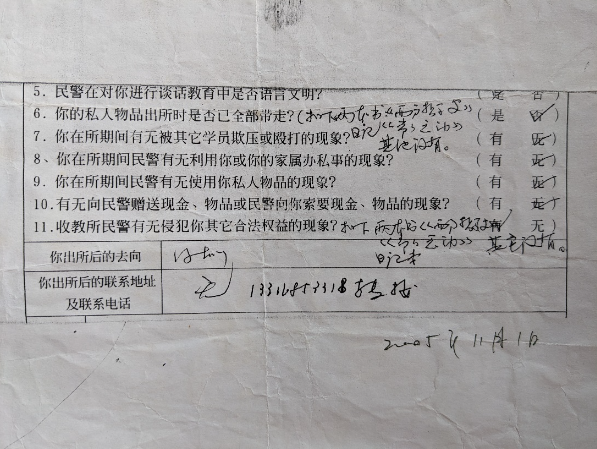 5. 民警在对你进行谈话教育中是否语言文明? (是 否)
6. 你的私人物品出所时是否已全部带走? (扣下两本书《西方哲学史》 (是 否)
日记《》运动》
7. 你在所期间有无被其它学员欺压或殴打的现象? 其它没有。 (有 无)
8、你在所期间民警有无利用你或你的家属办私事的现象? (有 无)
9. 你在所期间民警有无使用你私人物品的现象? (有 无)
10. 有无向民警赠送现金、物品或民警向你索要现金、物品的现象? (有 无)
11. 收教所民警有无侵犯你其它合法权益的现象? 扣下两本书《西方哲学 (有 无)
运动》 其它没有。
你出所后的去向
日记本
你出所后的联系地址
及联系电话
无 转接
2005年11月1日